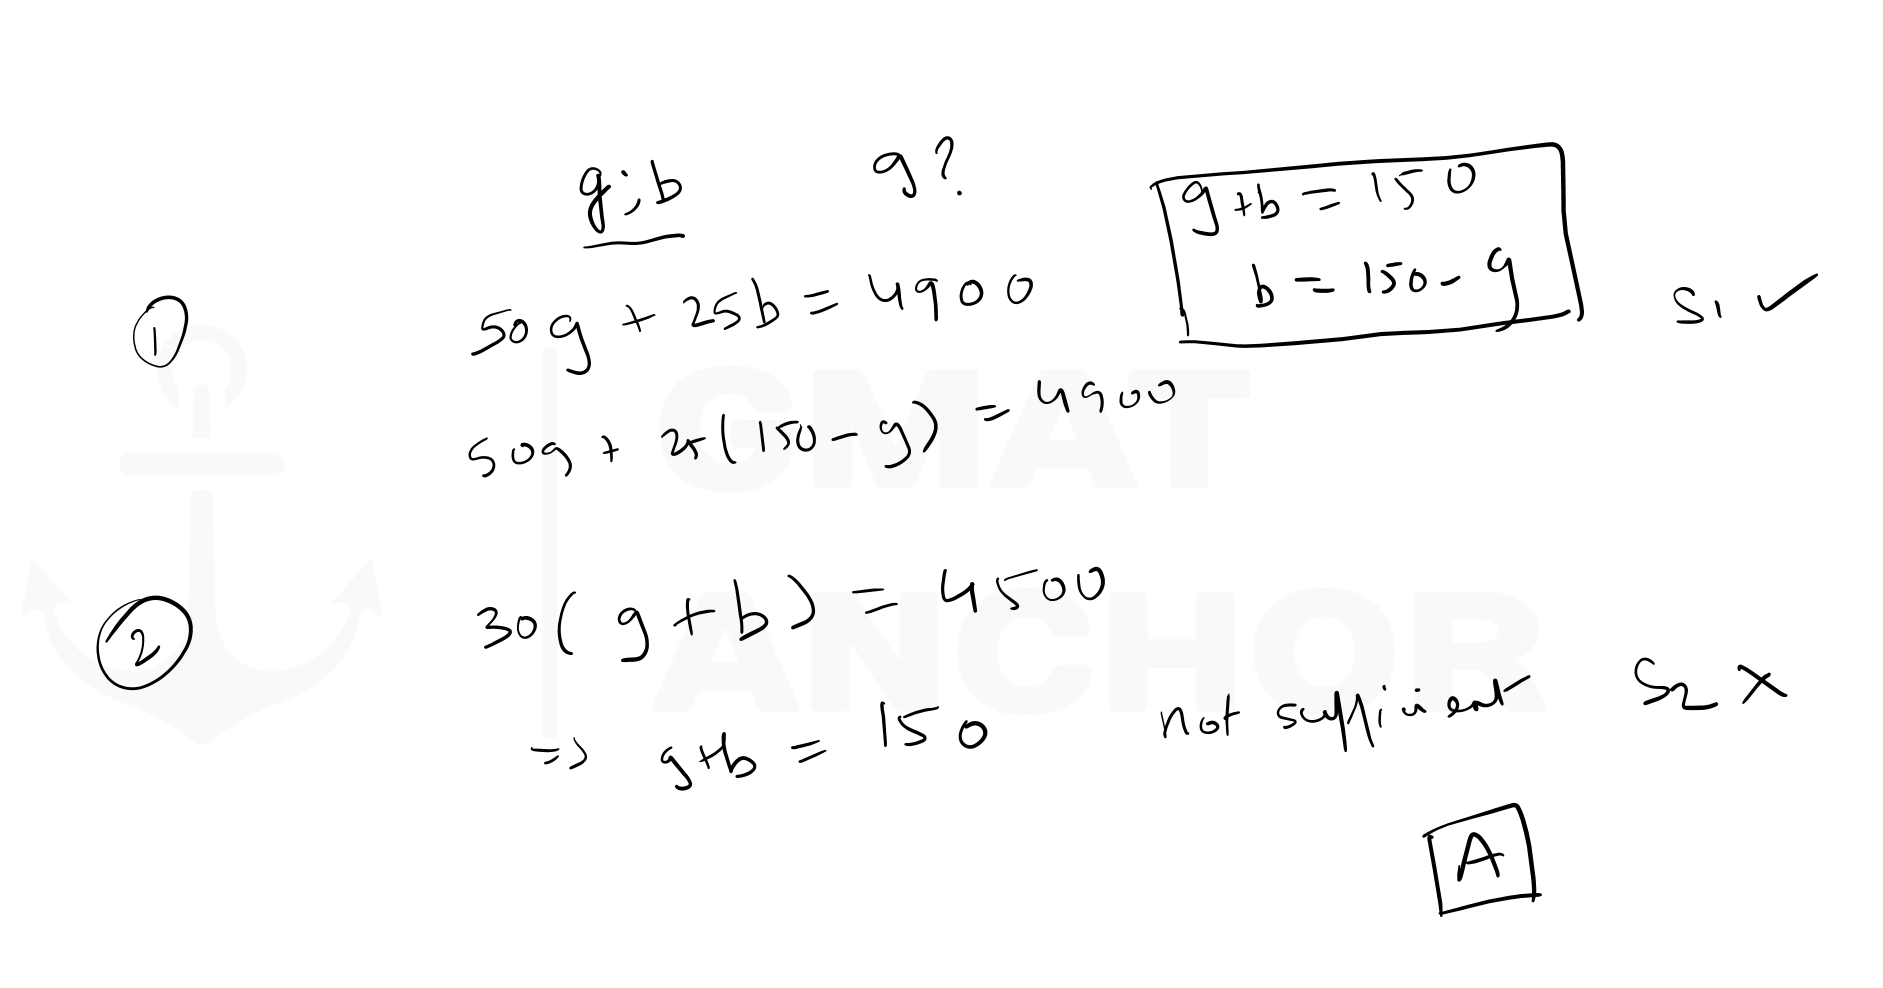 g;b g?
g+b = 150
b = 150 - g
① 50g + 25b = 4900 S1 ✓
50g + 25(150 - g) = 4900
GMAT
② 30(g+b) = 4500
ANCHOR
=> g+b = 150 not sufficient S2 ×
A